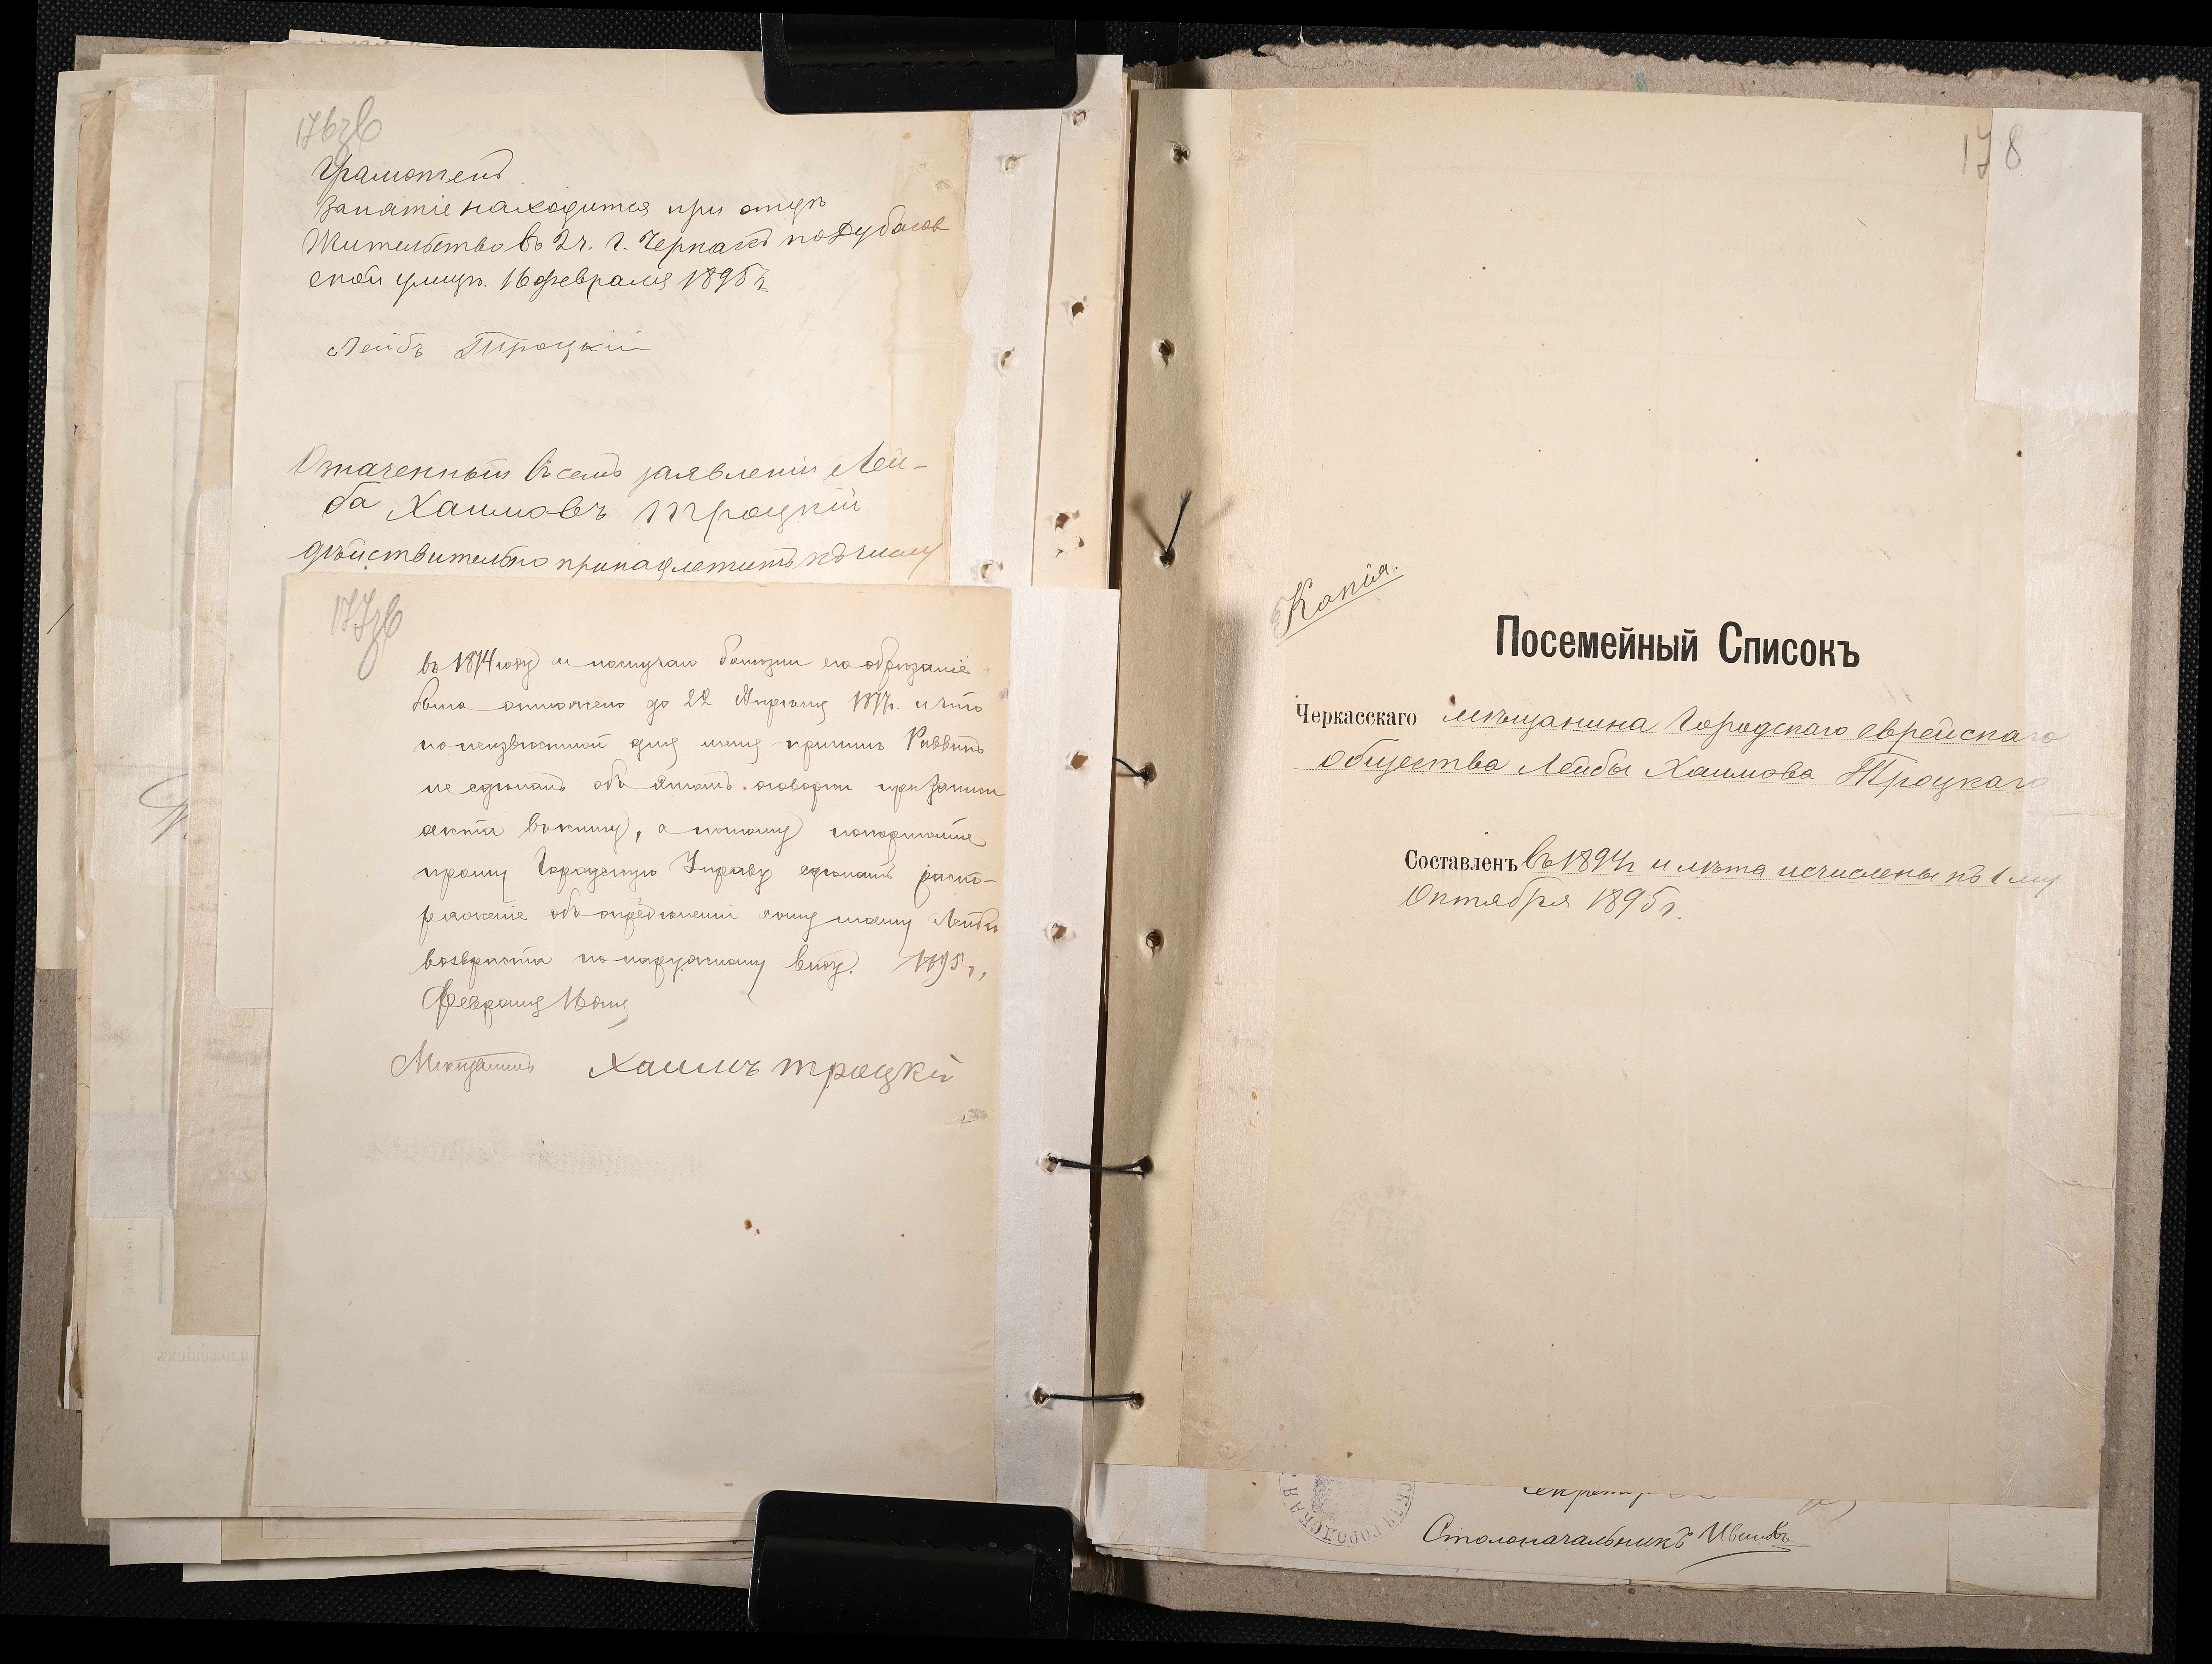 176зв
Грамотенъ
Занятіе находится при отцѣ
Жительство въ 2 ч. г. Черкасъ по Дубасов
ской улицѣ. 16 февраля 1895 г.
Лейбъ Троцкій
Означенный въ семъ заявленіи Лей-
ба Хаимовъ Троцкій
дѣйствительно принадлежитъ къ числу
177зв
въ 1874 году и по случаю болѣзни его обрѣзаніе
было отложено до 22 Апрѣля 1877г. и что
по неизвѣстной для меня причинѣ Раввинъ
не сдѣлалъ объ этомъ оговорки при записи
акта въ книгу, а потому покорнѣйше
прошу Городскую Управу сдѣлать расп-
ряженіе объ опредѣленіи сыну моему Лейбѣ
возраста по наружному виду. 1895 г.,
Февраля 16 дня
Мѣщанинъ Хаимъ Троцкій
178
Копія.
Посемейный Списокъ
Черкасскаго мѣщанина Городскаго еврейскаго
общества Лейбы Хаимова Троцкаго
Составленъ въ 1894 г и лѣта исчислены къ 1 му
Октября 1895 г.
Столоначальникъ